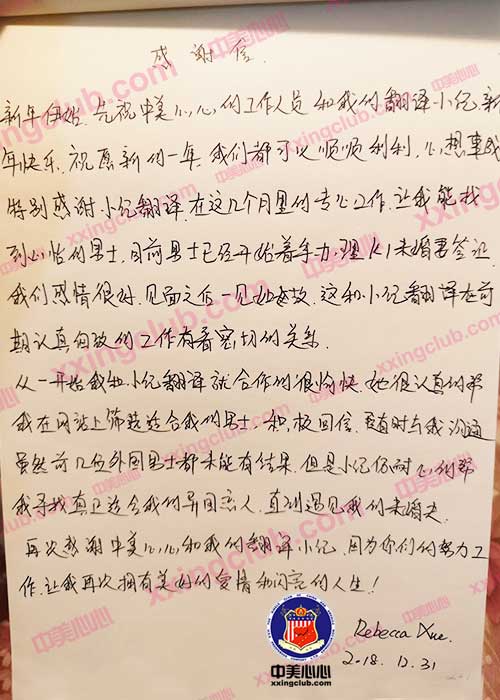 感谢信.
新年伊始, 先祝中美心心的工作人员和我的翻译小纪, 新
年快乐. 祝愿新的一年, 我们都可以顺顺利利, 心想事成
特别感谢小纪翻译. 在这几个月里的专心工作. 让我能找
到心怡的男士, 目前男士已经开始着手办理K1未婚妻签证.
我们感情很好. 见面之后一见如故. 这和小纪翻译在前
期认真负责的工作有着密切的关系.
从一开始我和小纪翻译就合作的很愉快. 她很认真的帮
我在网站上筛选适合我的男士, 和,校回信. 随时与我沟通
虽然前几位外国男士都未能有结果. 但是小纪仍耐心的帮
我寻找真正适合我的异国恋人. 直到遇见我的未婚夫.
再次感谢中美心心和我的翻译小纪. 因为你们的努力工
作. 让我再次拥有美好的爱情和闪亮的人生!
Rebecca Xue.
2018. 12. 31
中美心心
xxingclub.com